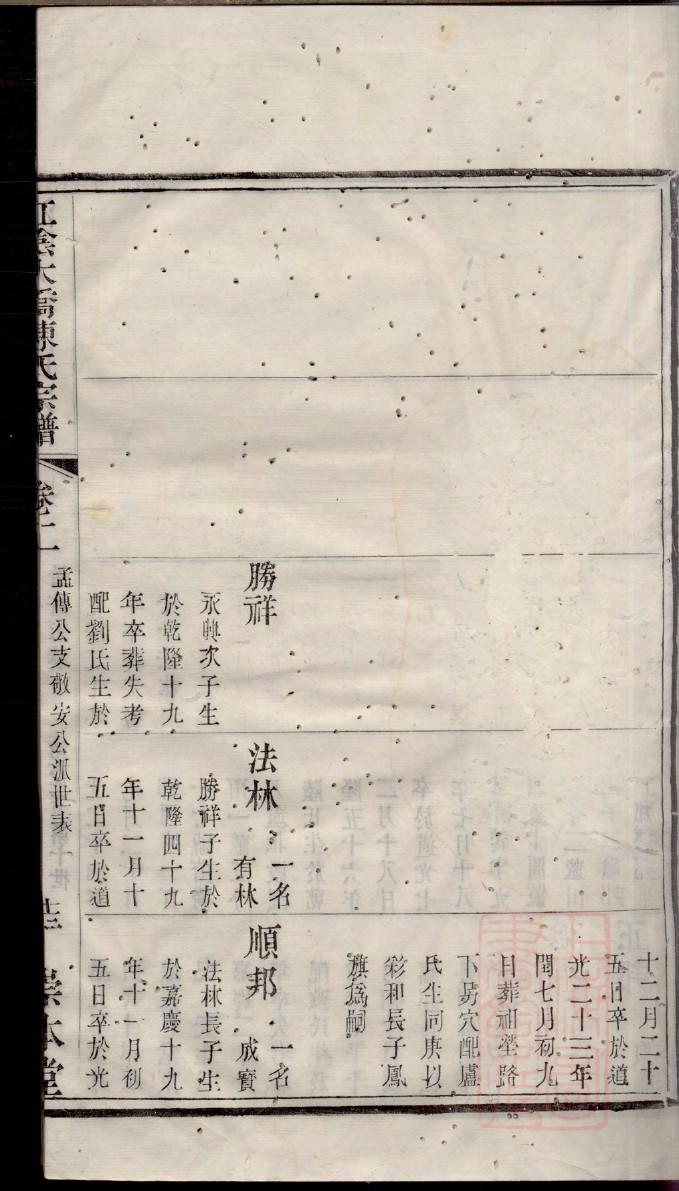 十二月二十
五日卒於道
光二十三年
閏七月初九
日葬祖塋路
下昜穴配盧
氏生同庚以
彩和長子鳳
旗爲嗣
勝祥
永興次子生
於乾隆十九
年卒葬失考
配劉氏生於
法林 一名
有林
勝祥子生於
乾隆四十九
年十一月十
五日卒於道
順邦 一名
成寳
法林長子生
於嘉慶十九
年十一月初
五日卒於光
江陰大橋陳氏宗譜
卷十二
孟傳公支敬安公派世表
崇本堂